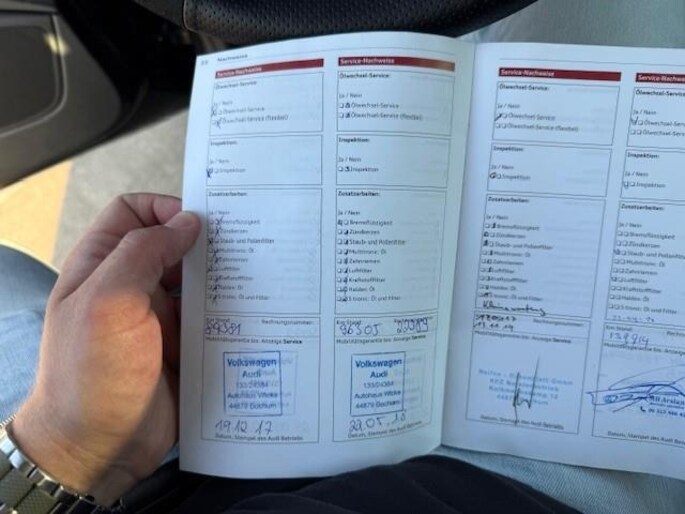 Nachweise
Service-Nachweise
Ölwechsel-Service:
Ja / Nein
Ölwechsel-Service
Ölwechsel-Service (flexibel)
Inspektion:
Ja / Nein
Inspektion
Zusatzarbeiten:
Ja / Nein
Bremsflüssigkeit
Zündkerzen
Staub- und Pollenfilter
Multitronic: Öl
Zahnriemen
Luftfilter
Kraftstofffilter
Haldex: Öl
S tronic: Öl und Filter
Km-Stand: Rechnungsnummer:
89351
Mobilitätsgarantie bis: Anzeige Service
Volkswagen
Audi
Autohaus Wicke
44879 Bochum
19.12.17
Datum, Stempel des Audi Betriebs
Service-Nachweise
Ölwechsel-Service:
Ja / Nein
Ölwechsel-Service
Ölwechsel-Service (flexibel)
Inspektion:
Ja / Nein
Inspektion
Zusatzarbeiten:
Ja / Nein
Bremsflüssigkeit
Zündkerzen
Staub- und Pollenfilter
Multitronic: Öl
Zahnriemen
Luftfilter
Kraftstofffilter
Haldex: Öl
S tronic: Öl und Filter
96305
Mobilitätsgarantie bis: Anzeige Service
Volkswagen
Audi
Autohaus Wicke
44879 Bochum
22.05.18
Datum, Stempel des Audi Betriebs
Service-Nachweise
Ölwechsel-Service:
Ja / Nein
Ölwechsel-Service
Ölwechsel-Service (flexibel)
Inspektion:
Ja / Nein
Inspektion
Zusatzarbeiten:
Ja / Nein
Bremsflüssigkeit
Zündkerzen
Staub- und Pollenfilter
Multitronic: Öl
Zahnriemen
Luftfilter
Kraftstofffilter
Haldex: Öl
S tronic: Öl und Filter
Rechnungsnummer:
Mobilitätsgarantie bis: Anzeige Service
Datum, Stempel des Audi Betriebs
Service-Nachweise
Ölwechsel-Service:
Ja / Nein
Inspektion:
Ja / Nein
Inspektion
Zusatzarbeiten:
Ja / Nein
Bremsflüssigkeit
Zündkerzen
Multitronic: Öl
Zahnriemen
Luftfilter
Kraftstofffilter
Haldex: Öl
S tronic: Öl und Filter
Km-Stand:
Datum, Stempel des Audi